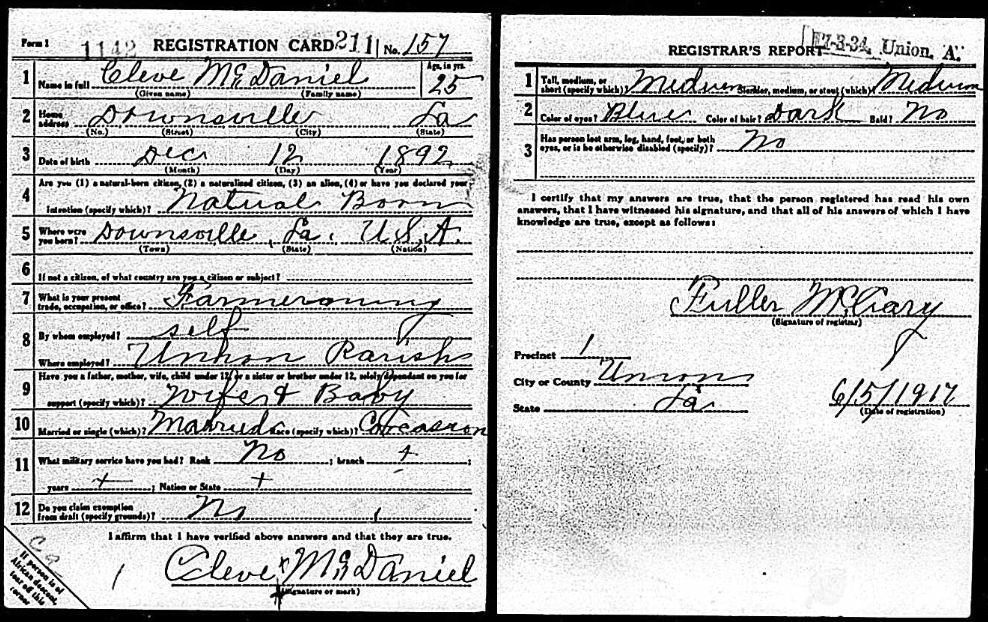 Form 1 1142 REGISTRATION CARD 211 No. 157
1 Name in full Cleve McDaniel Age, in yrs. 25
(Given name) (Family name)
2 Home address Downsville La
(No.) (Street) (City) (State)
3 Date of birth Dec 12 1892
(Month) (Day) (Year)
4 Are you (1) a natural-born citizen, (2) a naturalized citizen, (3) an alien, (4) or have you declared your
intention (specify which)? Natural Born
5 Where were you born? Downsville, La. U.S.A.
(Town) (State) (Nation)
6 If not a citizen, of what country are you a citizen or subject?
7 What is your present trade, occupation, or office?
8 By whom employed? self
Where employed? Union Parish
9 Have you a father, mother, wife, child under 12, or a sister or brother under 12, solely dependent on you for
support (specify which)? Wife & Baby
10 Married or single (which)? Married Race (specify which)? Cocasion
11 What military service have you had? Rank No ; branch + ;
years + ; Nation or State +
12 Do you claim exemption from draft (specify grounds)? No
I affirm that I have verified above answers and that they are true.
Cleve x McDaniel
(Signature or mark)
If person is of
African descent,
tear off this
corner
REGISTRAR'S REPORT 17-3-34. Union "A"
1 Tall, medium, or short (specify which)? Medium Slender, medium, or stout (which)? Medium
2 Color of eyes? Blue Color of hair? Dark Bald? No
3 Has person lost arm, leg, hand, foot, or both
eyes, or is he otherwise disabled (specify)? No
I certify that my answers are true, that the person registered has read his own
answers, that I have witnessed his signature, and that all of his answers of which I have
knowledge are true, except as follows:
Fuller McGary
(Signature of registrar)
Precinct 1
City or County Union
State La
6/5/1917
(Date of registration)